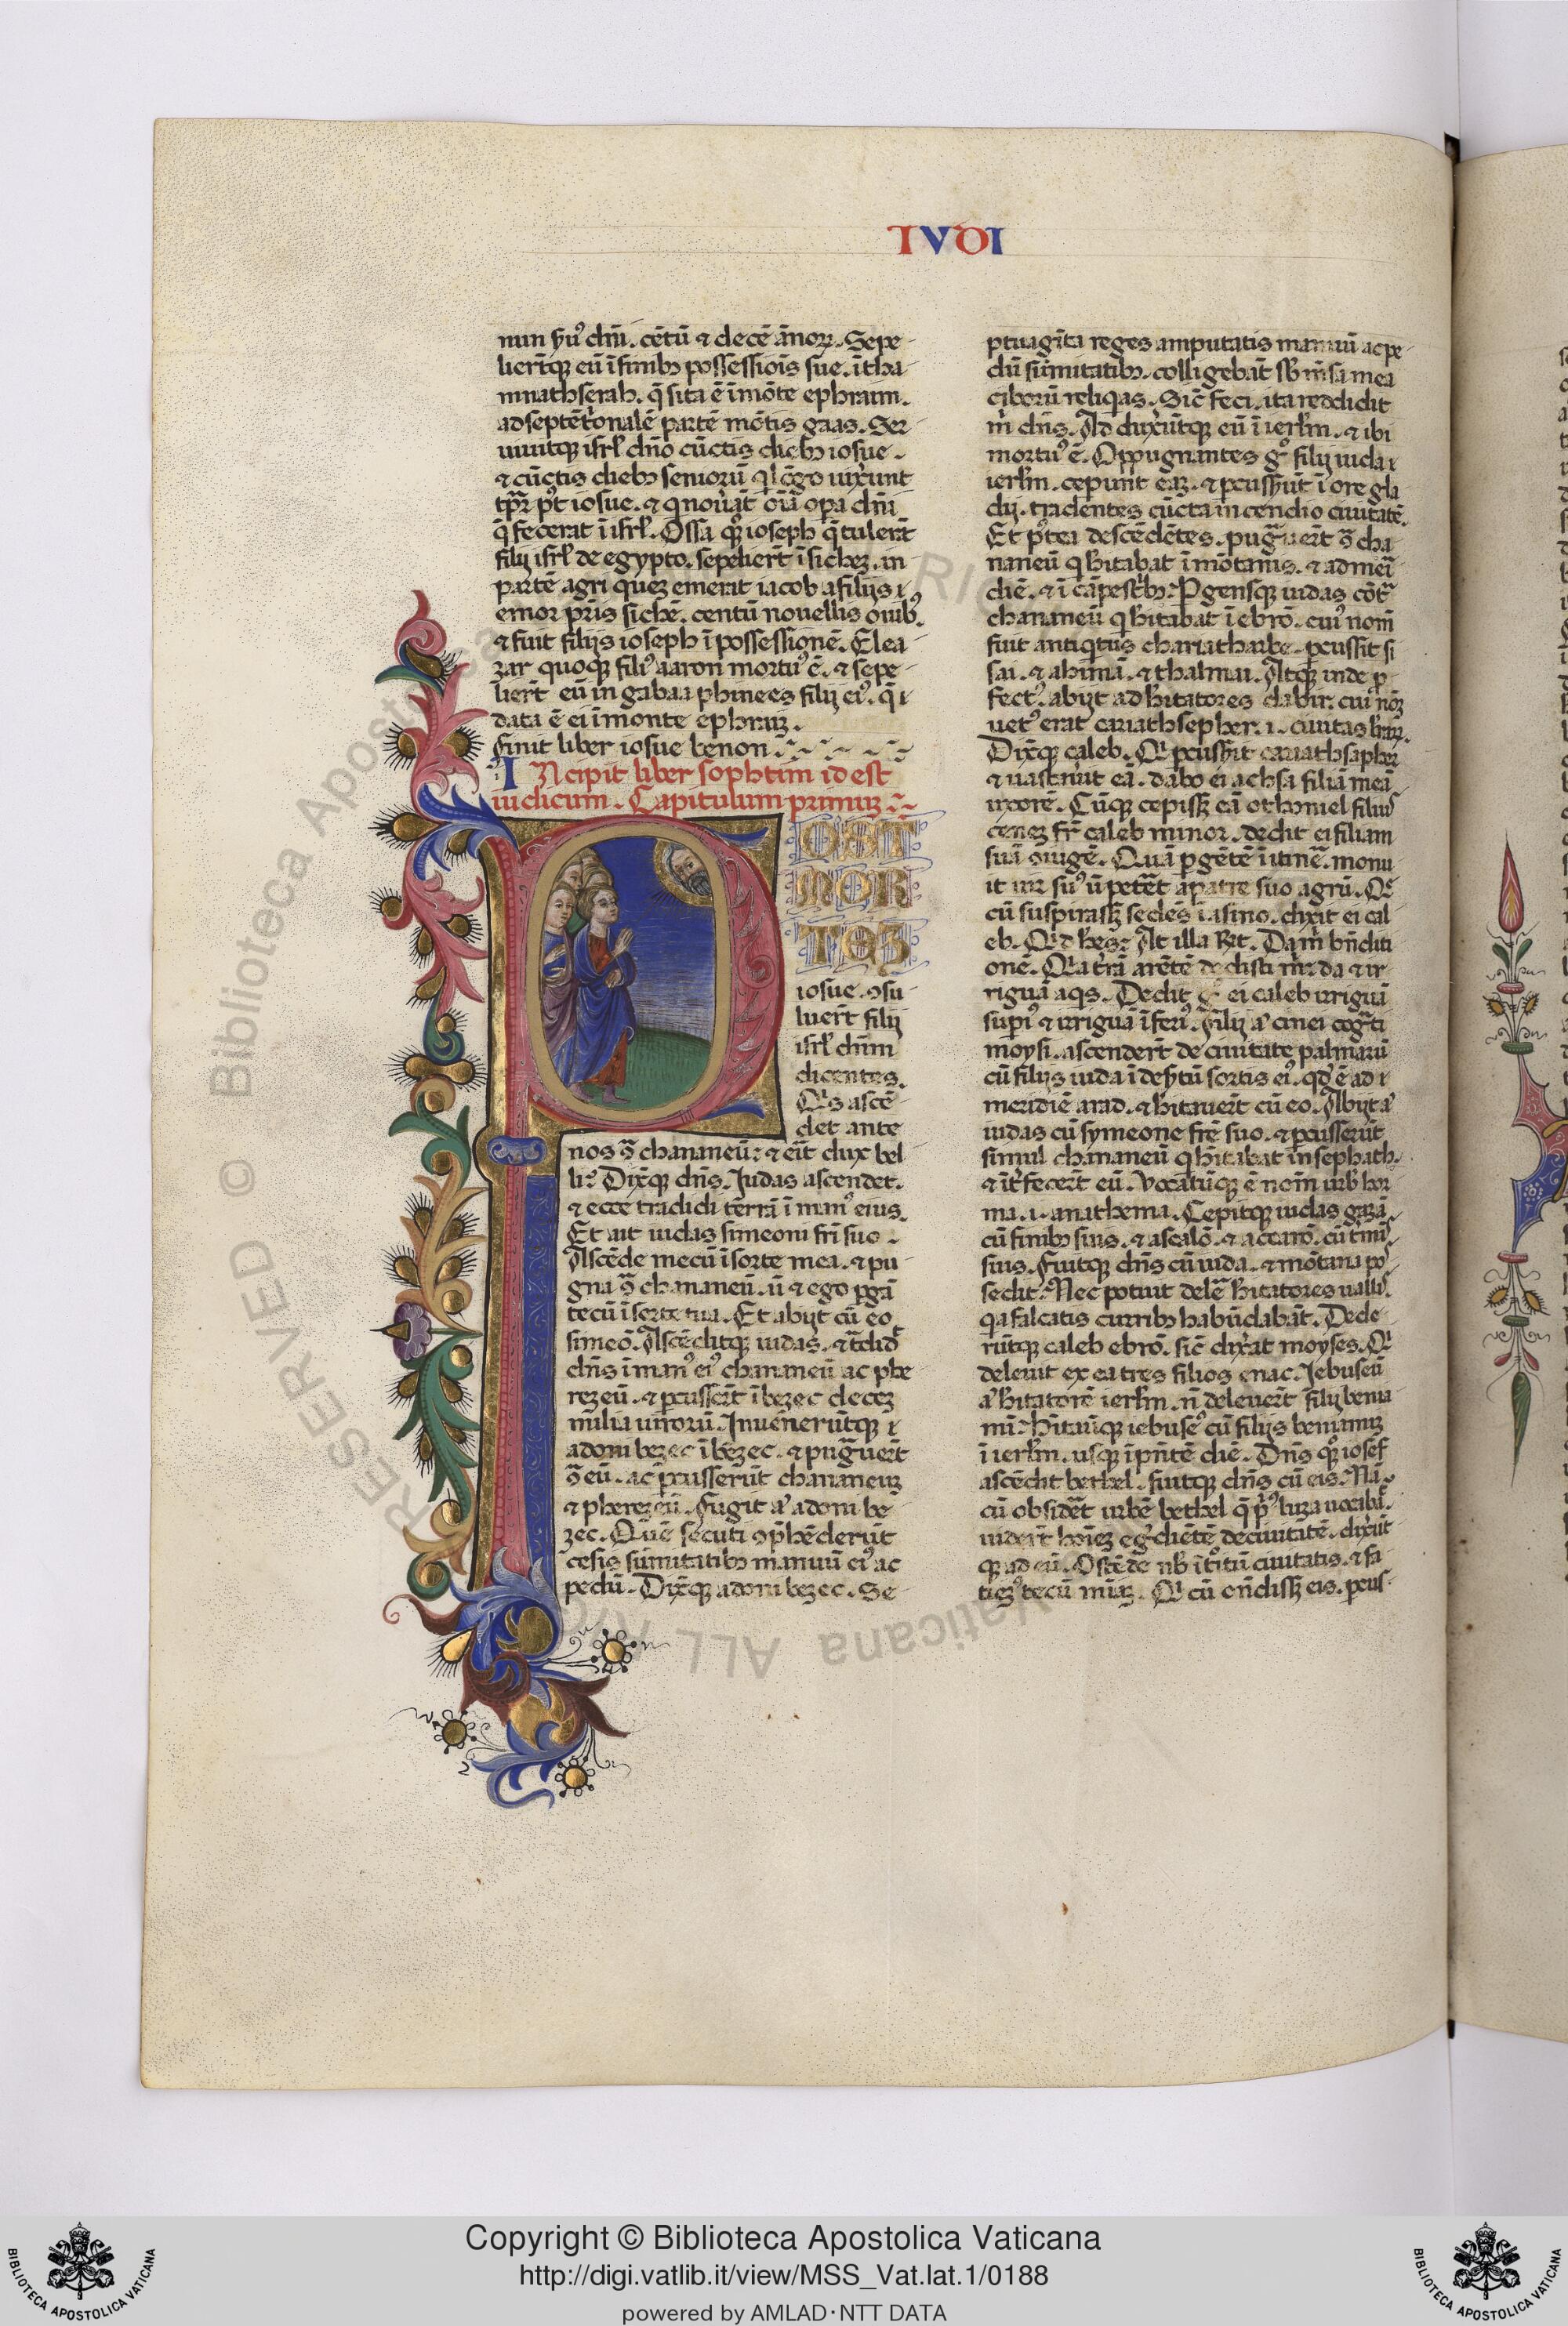 IVDI
nun ẜuꝰ dñi. cētū ⁊ decē ānoꝝ. Sepe
lierūtqꝫ eū ī finibꝫ possessiōis sue. ī tha
mnathserah. q̄ sita ē ī mōte ephraim.
ad septētͥonalē partē mōtis gaas. Ser
uiuitqꝫ isrl̄ dño cūctis diebꝫ iosue.
⁊ cūctis diebꝫ senioꝝ q lōgo uixͤunt
tp̄ꝛ pꝰt iosue. ⁊ q nouāt oīa opa dñi
q̄ fecerat ī isrl̄. Ossa qꝫ ioseph q̄ tulert̄
filij isrl̄ de egypto. sepelierт̄ ī sichez. in
partē agri quez emerat iacob a filijs
emor pr̄is sichē. centū nouellis ouibꝰ.
⁊ fuit filijs ioseph ī possessionē. Elea
zar quoqꝫ filiꝰ aaron mortuꝰ ē. ⁊ sepe
liert̄ eū in gabaa phinees filij eiꝰ. q̄
data ē ei ī monte ephraiꝫ.
finit liber iosue benon
INcipit liber sophtim id est
iudicum. Capitulum primuꝫ
POST
MOR
TEꝫ
iosue. ꝯsu
luert̄ filij
isrl̄ dñm
dicentes.
Qͥs ascē
det ante
nos ꝯ̄ chananeū: ⁊ eīt dux bel
li: Dix̄qꝫ dñs. Judas ascendet.
⁊ ecce tradidi terrā ī manꝰ eius.
Et ait iudas simeoni fr̄i suo.
Ascēde mecū ī sorte mea. ⁊ pu
gna ꝯ̄ chananeū. ū ⁊ ego ꝑgā
tecū ī sorte tua. Et abijt cū eo
simeō. Ascēditqꝫ iudas. ⁊ t̄did
dñs ī manꝰ eiꝰ chananeū ac phe
rezeū. ⁊ ꝑcussert̄ ī bezec decez
milia uiroꝝ. Inuenerūtqꝫ
adoni bezec ī bezec. ⁊ puḡuert̄
ꝯ̄ eū. ac ꝑcusserūt chananeuꝫ
⁊ pherezeū. fugit aͧ adoni be
zec. Quē secuti ꝯp̄hēderūt
cesis sūmitatibꝫ manuū eiꝰ ac
pedū. Dix̄qꝫ adoni bezec. Se
ptuagīta reges amputatis manuū ac pe
dū sūmitatibꝫ. colligebāt sb̄ mēsa mea
ciborū reliqͥas. Sic̄ feci. ita reddidit
m̄ dñs. Ad duxͤūtqꝫ eū ī ierlm̄. ⁊ ibi
mortuꝰ ē. Oppugnantes gͦ filij iuda
ierlm̄. cepunt eaꝫ. ⁊ ꝑcusserūt ī ore gla
dij. tradentes cūcta incendio ciuitatē.
Et pꝰtea descēdētes. pug̅uert̄ ꝯ̄ cha
naneū q hītabat ī mōtanis. ⁊ ad meī
diē. ⁊ ī cāpestͥbꝫ. Ꝑgensqꝫ iudas cōt̄
chananeū q hītabat ī ebrō. cuiꝰ nom̄
fuit antiqͥtus chariatharbe. ꝑcussit si
sai. ⁊ ahimā. ⁊ thalmai. Atqꝫ inde ꝓ
fectꝰ. abijt ad hītatores dabir. cuiꝰ nōꝫ
uetꝰ erat cariathsepher. i. ciuitas lr̄aꝝ.
Dix̄qꝫ caleb. Qͥ ꝑcusserit cariathsapher
⁊ uastauit eā. dabo ei achsa filiā meā
uxorē. Cūqꝫ cepisꝫ eā othoniel filiꝰ
cenez fr̄ caleb minor. dedit ei filiam
suā ꝯiugē. Quā ꝑgētē ī itinē. monu
it uir suꝰ ū petēt a patre suo agrū. Q̄
cū suspirasꝫ sedēs ī asino. dixit ei cal
eb. Qd hēs: At illa Rͣt. Da m̄ bn̄diti
onē. Qa tr̄ā arētē dedisti m̄: da ⁊ ir
riguā aqͥs. Dedit gͦ ei caleb irriguā
supiꝰ ⁊ irriguā īferiꝰ. Filij aͧ cinei cog̅ti
moysi. ascendert̄ de ciuitate palmarū
cū filijs iuda ī desertū sortis eiꝰ. qd̄ ē ad
meridiē arad. ⁊ hītauert̄ cū eo. Abijt aͧ
iudas cū symeone fr̄e suo. ⁊ ꝑcusserūt
simul chananeū q hītabat in sephath.
⁊ īt̄fecert̄ eū. Vocatūqꝫ ē nom̄ urb̄ hor
ma. i. anathema. Cepitqꝫ iudas gazā
cū finibꝫ suis. ⁊ ascalō. ⁊ accarō. cū t̄mīs
suis. Fuitqꝫ dñs cū iuda. ⁊ mōtana po
sedit. Nec potuit delē hītatores uallis.
qa falcatis curribꝫ habūdabāt. Dede
rūtqꝫ caleb ebrō. sic̄ dixͤat moyses. Qͥ
deleuit ex ea tres filios enac. Jebuseū
aͧ hītatorē ierlm̄. n̄ deleuert̄ filij benia
mī. Hītauitqꝫ iebusēꝰ cū filijs beniamiꝫ
ī ierlm̄. usqꝫ ī pn̄tē diē. Dñs qꝫ iosef
ascēdit bethel. fuitqꝫ dñs cū eis. Nā
cū obsidēt urbē bethel q̄ pͥꝰ luza uocabāt.
uidert̄ hoīeꝫ eg̅diētē de ciuitatē. dixͤūt
qꝫ ad eū. Ostēde nb̄ ītͦitū ciuitatis. ⁊ fa
tiezꝰ tecū mīaꝫ. Qͥ cū on̄disꝫ eis. ꝑcus
RESERVED © Biblioteca Apostolica Vaticana ALL RIG
Copyright © Biblioteca Apostolica Vaticana
http://digi.vatlib.it/view/MSS_Vat.lat.1/0188
powered by AMLAD·NTT DATA
BIBLIOTECA APOSTOLICA VATICANA
BIBLIOTECA APOSTOLICA VATICANA